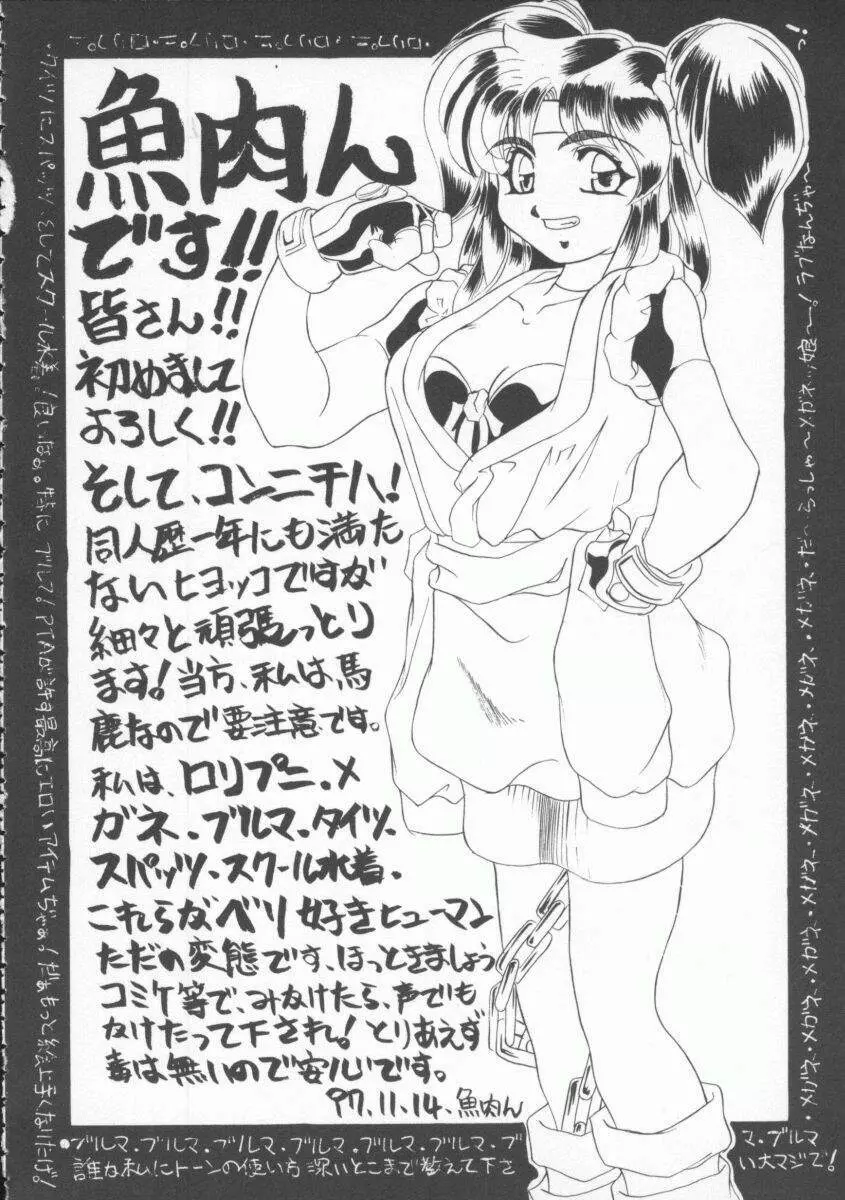 魚肉ん
です!!
皆さん!!
初めまして
よろしく!!
そして、コンニチハ!
同人歴一年にも満た
ないヒヨッコですが
細々と頑張っとり
ます!当方、私は、馬
鹿なので要注意です。
私は、ロリプニ、メ
ガネ、ブルマ、タイツ、
スパッツ、スクール水着、
これらがベリ好きヒューマン
ただの変態です、ほっときましょう
コミケ等で、みかけたら、声でも
かけたって下され!とりあえず
毒は無いので安心です。
97.11.14.魚肉ん
・ロリプニ・ロリプニ・ロリプニ・ロリプニ
・タイツにスパッツ、そしてスクール水着!良いなぁ。特にブルマ!PTAが許す最高にエロいアイテムぢゃぁ!だぁもっと絵上手くなりたげ!
っ!
・メガネ・メガネ・メガネ・メガネ・メガネ・メガネ・メガネ・だ〜らっしゃ〜メガネッ娘〜!ラブなんぢゃ〜
・ブルマ・ブルマ・ブルマ・ブルマ・ブルマ・ブルマ・ブ
マ・ブルマ
誰か私にトーンの使い方深いとこまで教えて下さ
い大マジで!